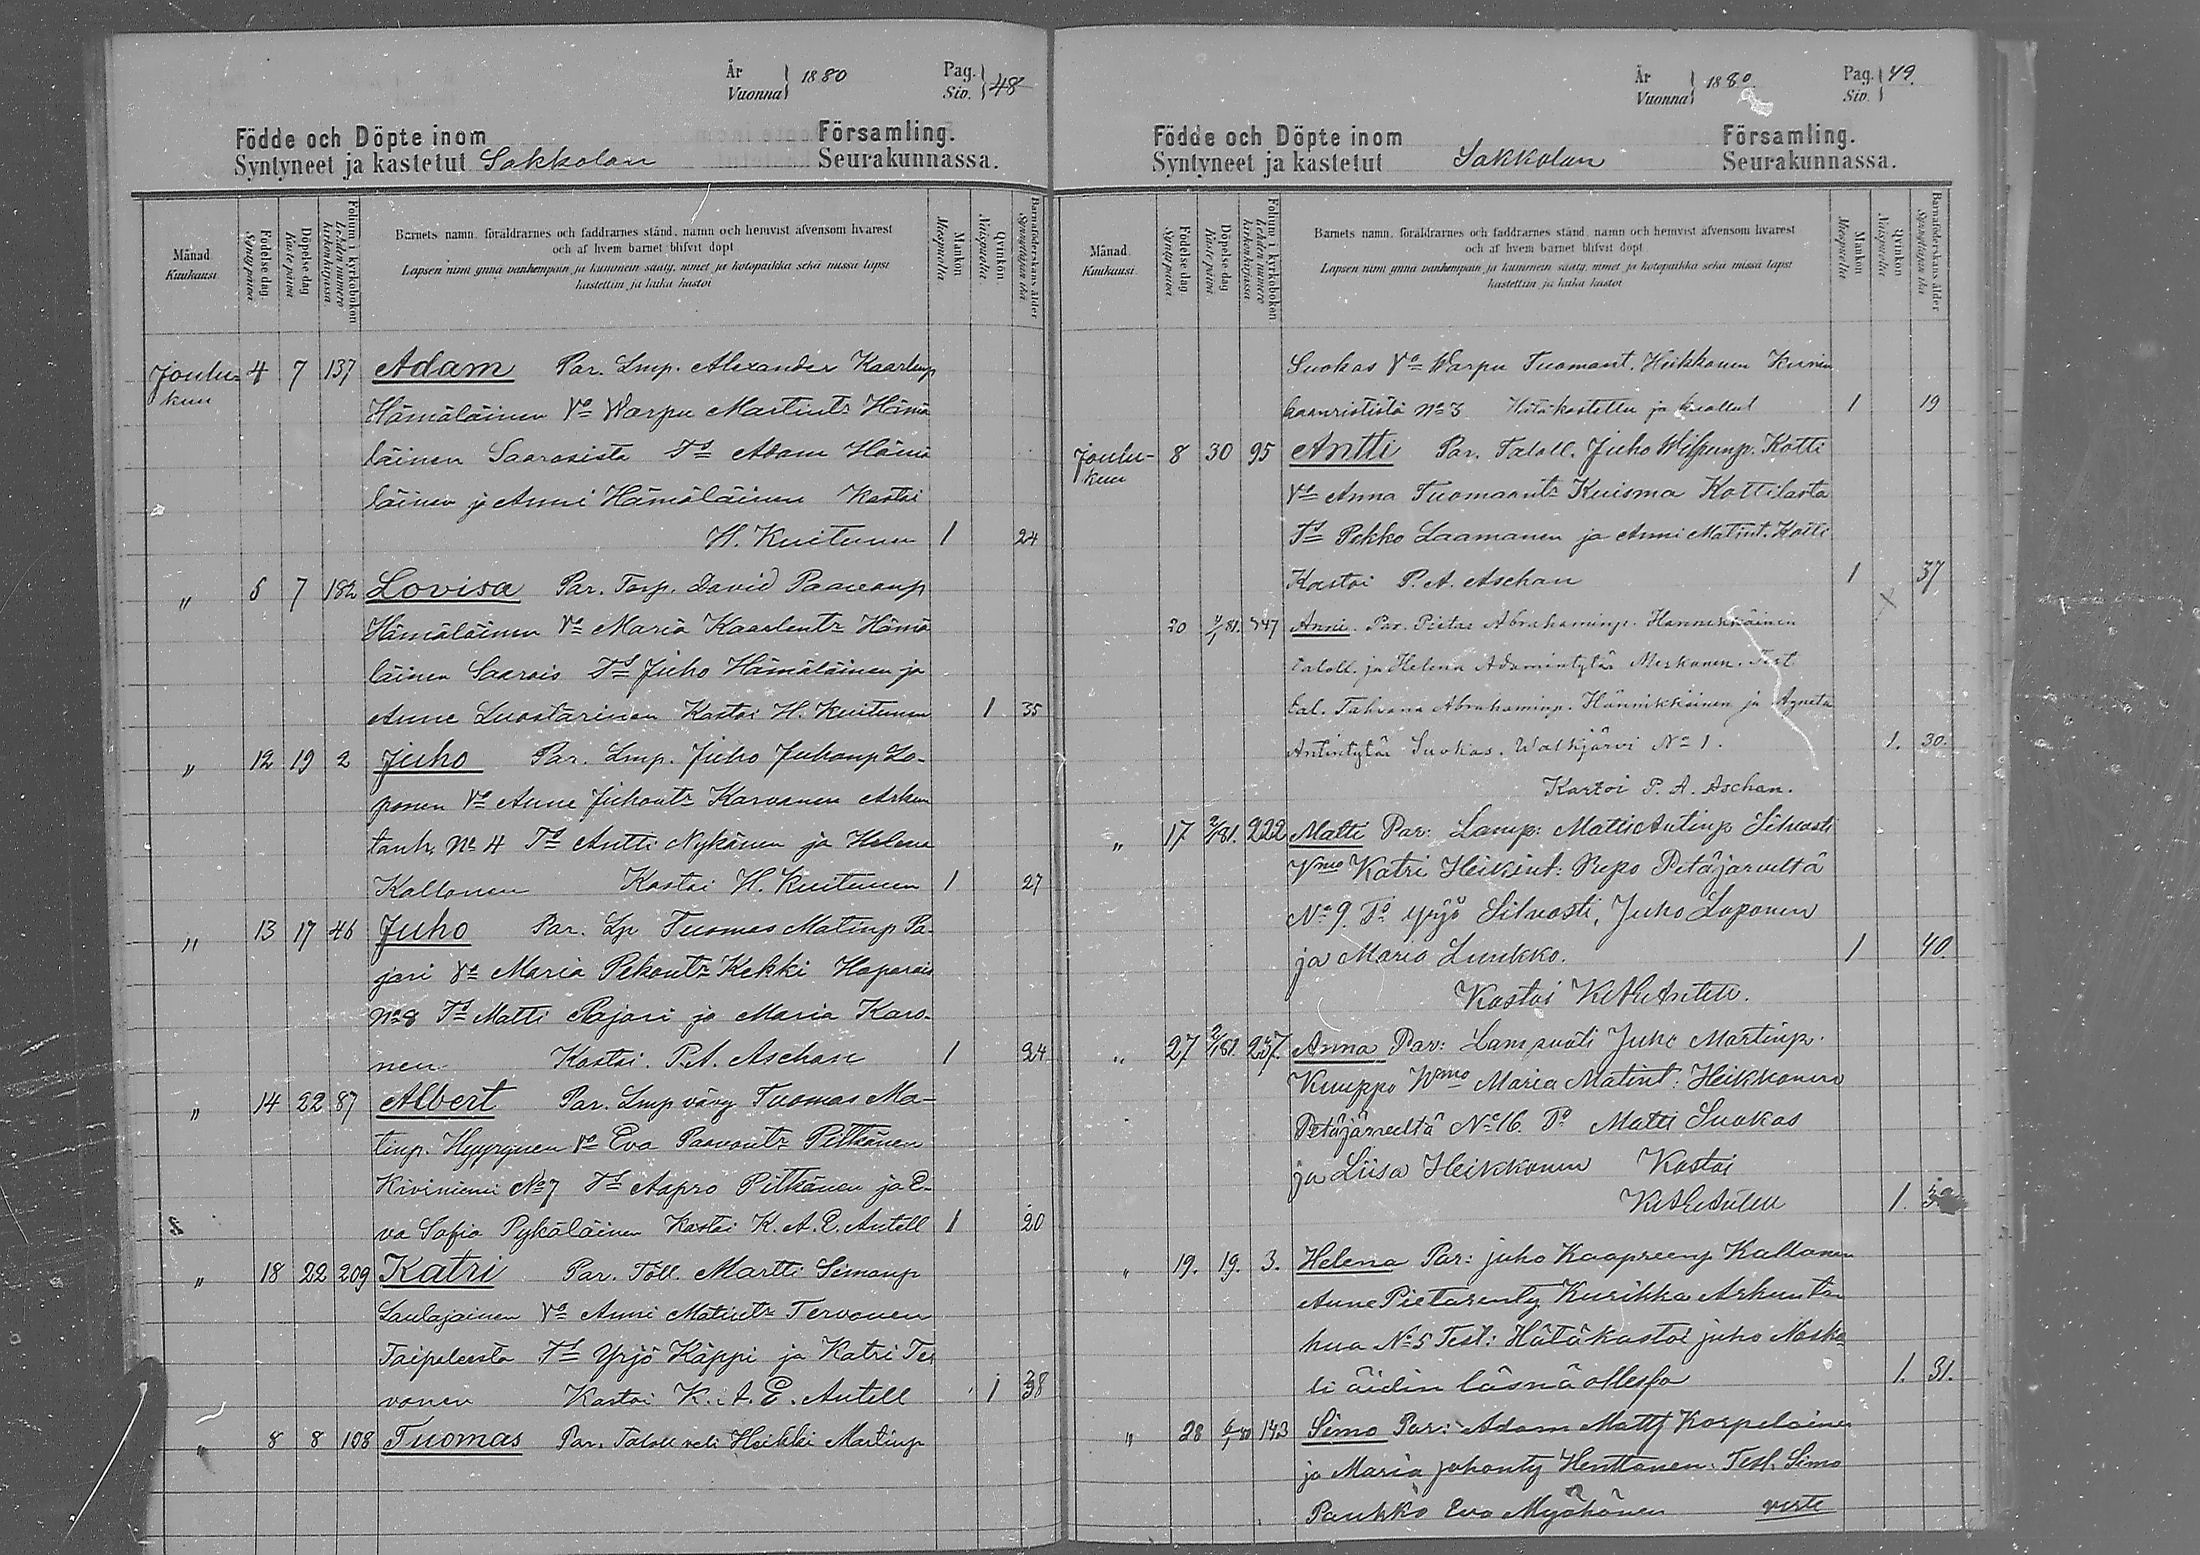 År Vuonna } 1880 Pag. Siv. } 48
Födde och Döpte inom Församling.
Syntyneet ja kastetut Sakkolan Seurakunnassa.
Månad. Kuukausi.
Födelsedag Syntypäivä
Döpelsedag Kastepäivä
Folium i kyrkoboken Lehden numero kirkonkirjassa
Barnets namn, föräldrarnes och faddrarnes stånd, namn och hemvist äfvensom hvarest
och af hvem barnet blifvit döpt.
Lapsen nimi ynnä vanhempain ja kummein sääty, nimet ja kotopaikka sekä missä lapsi
kastettiin ja kuka kastoi
Mankön Miespuolta
Qvinkön Naispuolta
Barnaföderskans ålder Synnyttäjän ikä
Joulu- 4 7 137 Adam Par. Lmp. Alexander Kaarlenp
kuu Hämäläinen Vo Warpu Martintr Hämä
läinen Saaroista Ts Adam Hämä
läinen ja Anni Hämäläinen Kastoi
H. Kuitunen 1 24
" 5 7 182 Lovisa Par. Torp. David Paavonp
Hämäläinen Vo Maria Kaarlentr Hämä
läinen Saarois Ts Juho Hämäläinen ja
Anne Luostarinen Kastoi H. Kuitunen 1 35
" 12 19 2 Juho Par. Lmp. Juho Juhonp Lo-
ponen Vo Anne Juhontr Karvanen Arkun
tanh. No 4 Ts Antti Nykänen ja Helena
Kallonen Kastoi H. Kuitunen 1 27
" 13 17 46 Juho Par. Lp Tuomas Matinp Pa
jari Vo Maria Pekontr Kekki Haparais
No 8 Ts Matti Pajari ja Maria Karo-
nen Kastoi P.A. Aschan 1 24
" 14 22 87 Albert Par. Lmp vävy Tuomas Ma-
tinp. Hyyrynen Vo Eva Paavontr Pitkänen
Kiviniemi No 7 Ts Aapro Pitkänen ja E-
va Sofia Pykäläinen Kastoi K. A. E. Antell 1 20
" 18 22 209 Katri Par. Toll. Martti Simonp
Laulajainen Vo Anni Matintr Tervonen
Taipaleesta Ts Yrjö Käppi ja Katri Ter
vonen Kastoi K. A. E. Antell 1 38
" 8 8 108 Tuomas Par. Taloll veli Heikki Martinp
År Vuonna } 1880 Pag. Siv. } 49.
Födde och Döpte inom Församling.
Syntyneet ja kastetut Sakkolan Seurakunnassa.
Månad. Kuukausi.
Födelsedag Syntypäivä
Döpelsedag Kastepäivä
Folium i kyrkoboken Lehden numero kirkonkirjassa
Barnets namn, föräldrarnes och faddrarnes stånd, namn och hemvist äfvensom hvarest
och af hvem barnet blifvit döpt.
Lapsen nimi ynnä vanhempain ja kummein sääty, nimet ja kotopaikka sekä missä lapsi
kastettiin ja kuka kastoi
Mankön Miespuolta
Qvinkön Naispuolta
Barnaföderskans ålder Synnyttäjän ikä
Suokas Vo Warpu Tuomant. Heikkonen
No 3 Hätäkastettu ja kuollut 1 19
Joulu- 8 30 95 Antti Par. Taloll. Juho Kotti
kuu Vo Anna Tuomaantr Kuisma Kottilasta
Ts Pekko Laamanen ja Anni Matint. Kotti
Kastoi P. A. Aschan 1 37
20 Anni. Par. Pietar Abrahaminp. Hannikkäinen
taloll. ja Helena Adamintytär Meskanen. Test
tal. Tahvana Abrahaminp. Hännikkäinen ja Agneta
Antintytär Suokas. Walkjärvi No 1. 1. 30.
Kastoi P. A. Aschan.
" 17 2/1 81. 222 Matti Par: Lamp: Matti Antinp Sihvasti
Vmo Katri Heikint: Repo Petäjärveltä
No 9. To Yrjö Sihvosti, Juho Loponen
ja Maria Luukko. 1 40.
Kastoi KAEAntell.
" 27 2/1 81 237. Anna Par: Lampuoti Juho Martinp.
Kuuppo Wmo Maria Matint: Heikkonen
Petäjärveltä No 16. To Matti Suokas
ja Liisa Heikkonen Kastoi
KAEAntell 1.
" 19. 19. 3. Helena Par: Juho Kaapreenp Kallonen
Anne Pietarenty Kurikka Arkunta
hua No 5 Test: Hätäkastoi juho Moska
li äidin läsnä ollessa 1. 31.
" 28 143 Simo Par: Adam Mattp Korpelainen
ja Maria Johonty Henttonen. Test. Simo
Paukko Eva Myöhänen verte